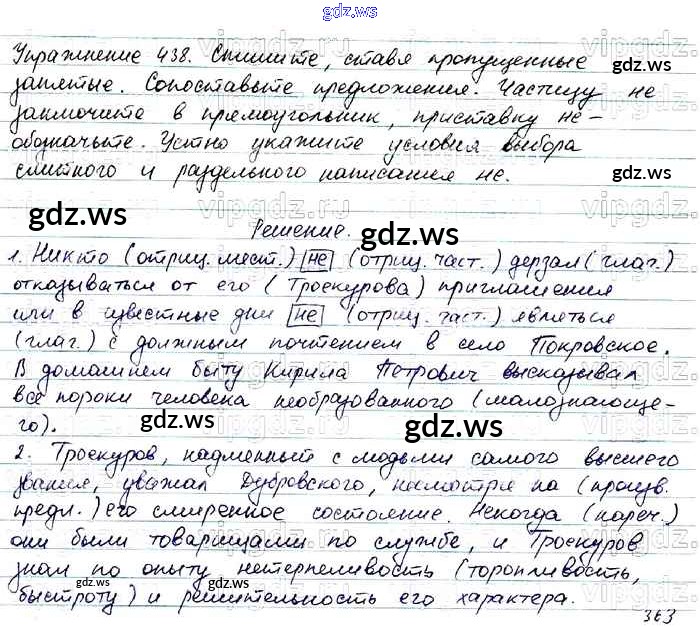 gdz.ws
Упражнение 438. Спишите, ставя пропущенные
запятые. Сопоставьте предложения. Частицу не
заключите в прямоугольник, приставку не-
обозначьте. Устно укажите условия выбора
слитного и раздельного написания не.
Решение.
1. Никто (отриц. мест.) не (отриц. част.) дерзал (глаг.)
отказываться от его (Троекурова) приглашения
или в известные дни не (отриц. част.) являться
(глаг.) с должным почтением в село Покровское.
В домашнем быту Кирила Петрович высказывал
все пороки человека необразованного (малознающе-
го).
2. Троекуров, надменный с людьми самого высшего
звания, уважал Дубровского, несмотря на (произв.
предл.) его смиренное состояние. Некогда (нареч.)
они были товарищами по службе, и Троекуров
знал по опыту нетерпеливость (торопливость,
быстроту) и решительность его характера.
363
gdz.ws
gdz.ws
gdz.ws
gdz.ws
gdz.ws
gdz.ws
gdz.ws
gdz.ws